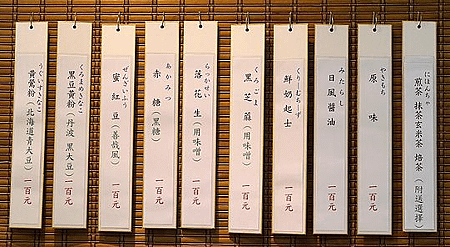 にほんちゃ
煎茶 抹茶玄米茶 焙茶（附送選擇）
やきもち
原味 一百元
みたらし
日風醬油 一百元
くりーむちーず
鮮奶起士 一百元
くろごま
黑芝蔴（用味噌） 一百元
らっかせい
落花生（用味噌） 一百元
あかみつ
赤糖（黑糖） 一百元
ぜんざいふう
蜜紅豆（善哉風） 一百元
くろまめきなこ
黑豆黃粉（丹波 黑大豆） 一百元
うぐいすきなこ
黃鶯粉（北海道青大豆） 一百元